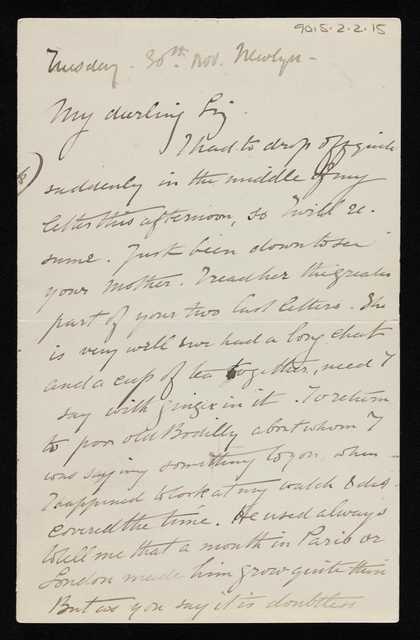 9015-2-2-15
Tuesday - 30th Nov. Newlyn -
My darling Sig.
I had to drop off quite
suddenly in the middle of my
letter this afternoon, so I will re-
sume. Just been down to see
your Mother. I read her the greater
part of your two last letters. She
is very well & we had a long chat
and a cup of tea together, need I
say with ginger in it. To return
to poor old Bodilly about whom I
was saying something to you when
I happened to look at my watch & dis-
covered the time. He used always
to tell me that a month in Paris or
London made him grow quite thin
But as you say it is doubtless